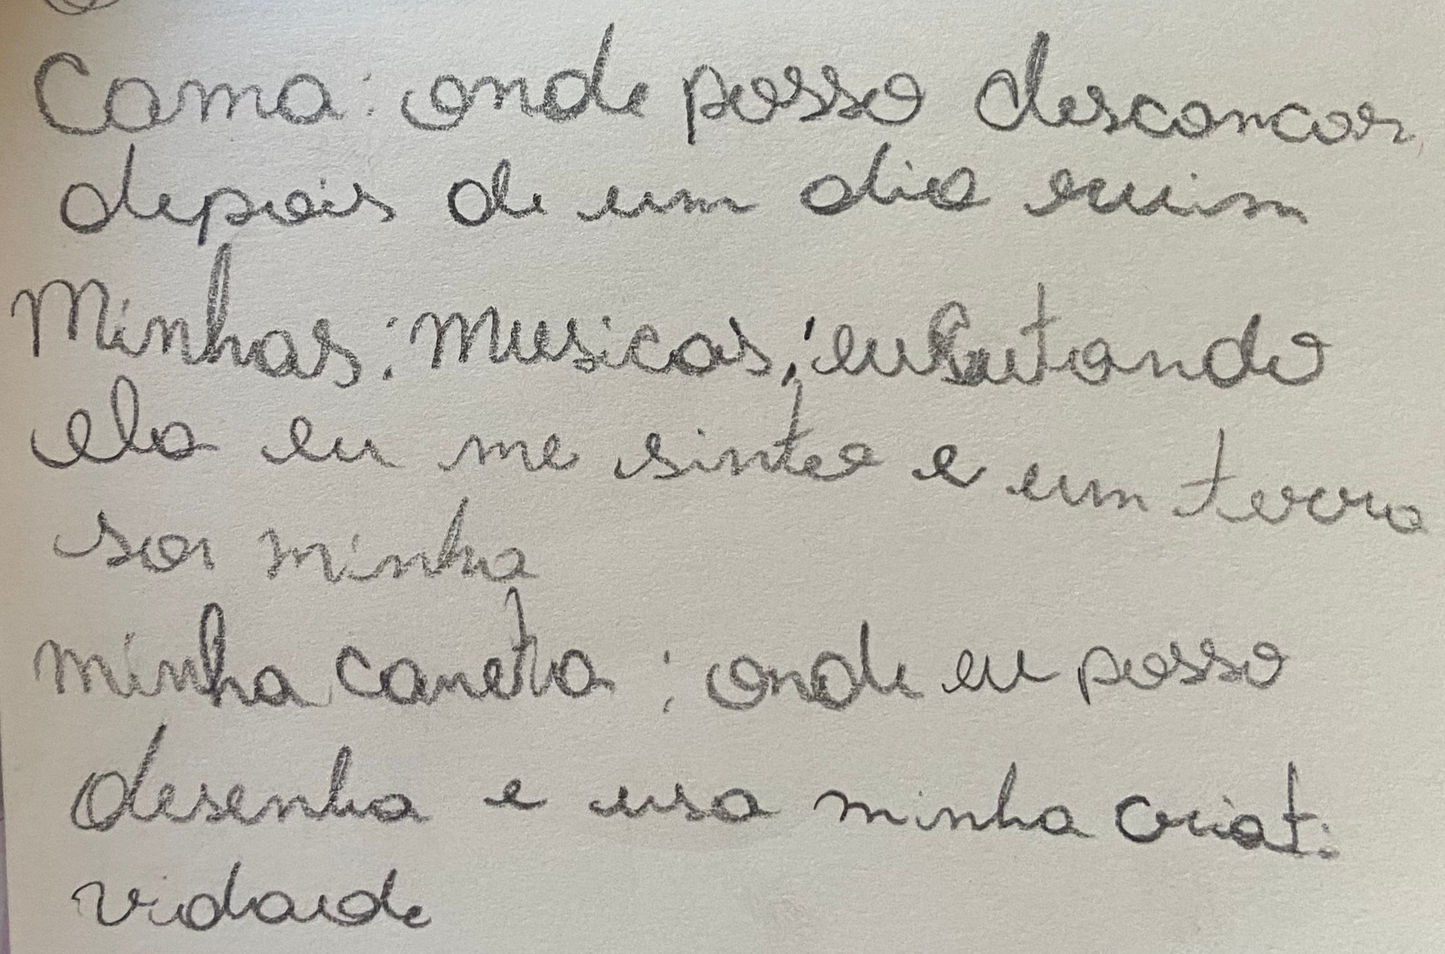 Cama: onde posso descancar
depois de um dia ruim
Minhas: musicas; escutando
ela eu me sinto e um terra
so minha
minha caneta: onde eu posso
desenha e usa minha criati
vidade